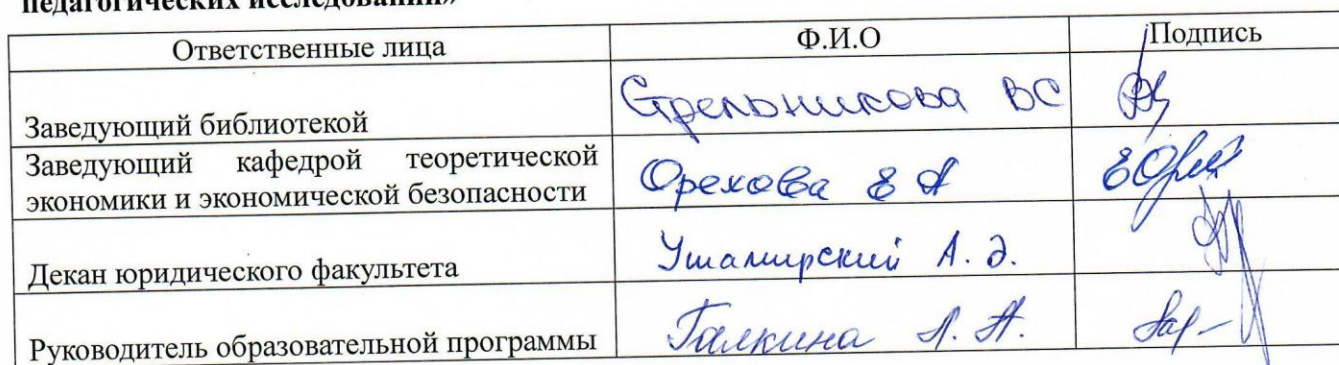 педагогических исследований»
Ответственные лица Ф.И.О Подпись
Заведующий библиотекой Стрельникова ВС
Заведующий кафедрой теоретической
экономики и экономической безопасности Орехова Е А
Декан юридического факультета А. Э.
Руководитель образовательной программы Галкина Л. А.